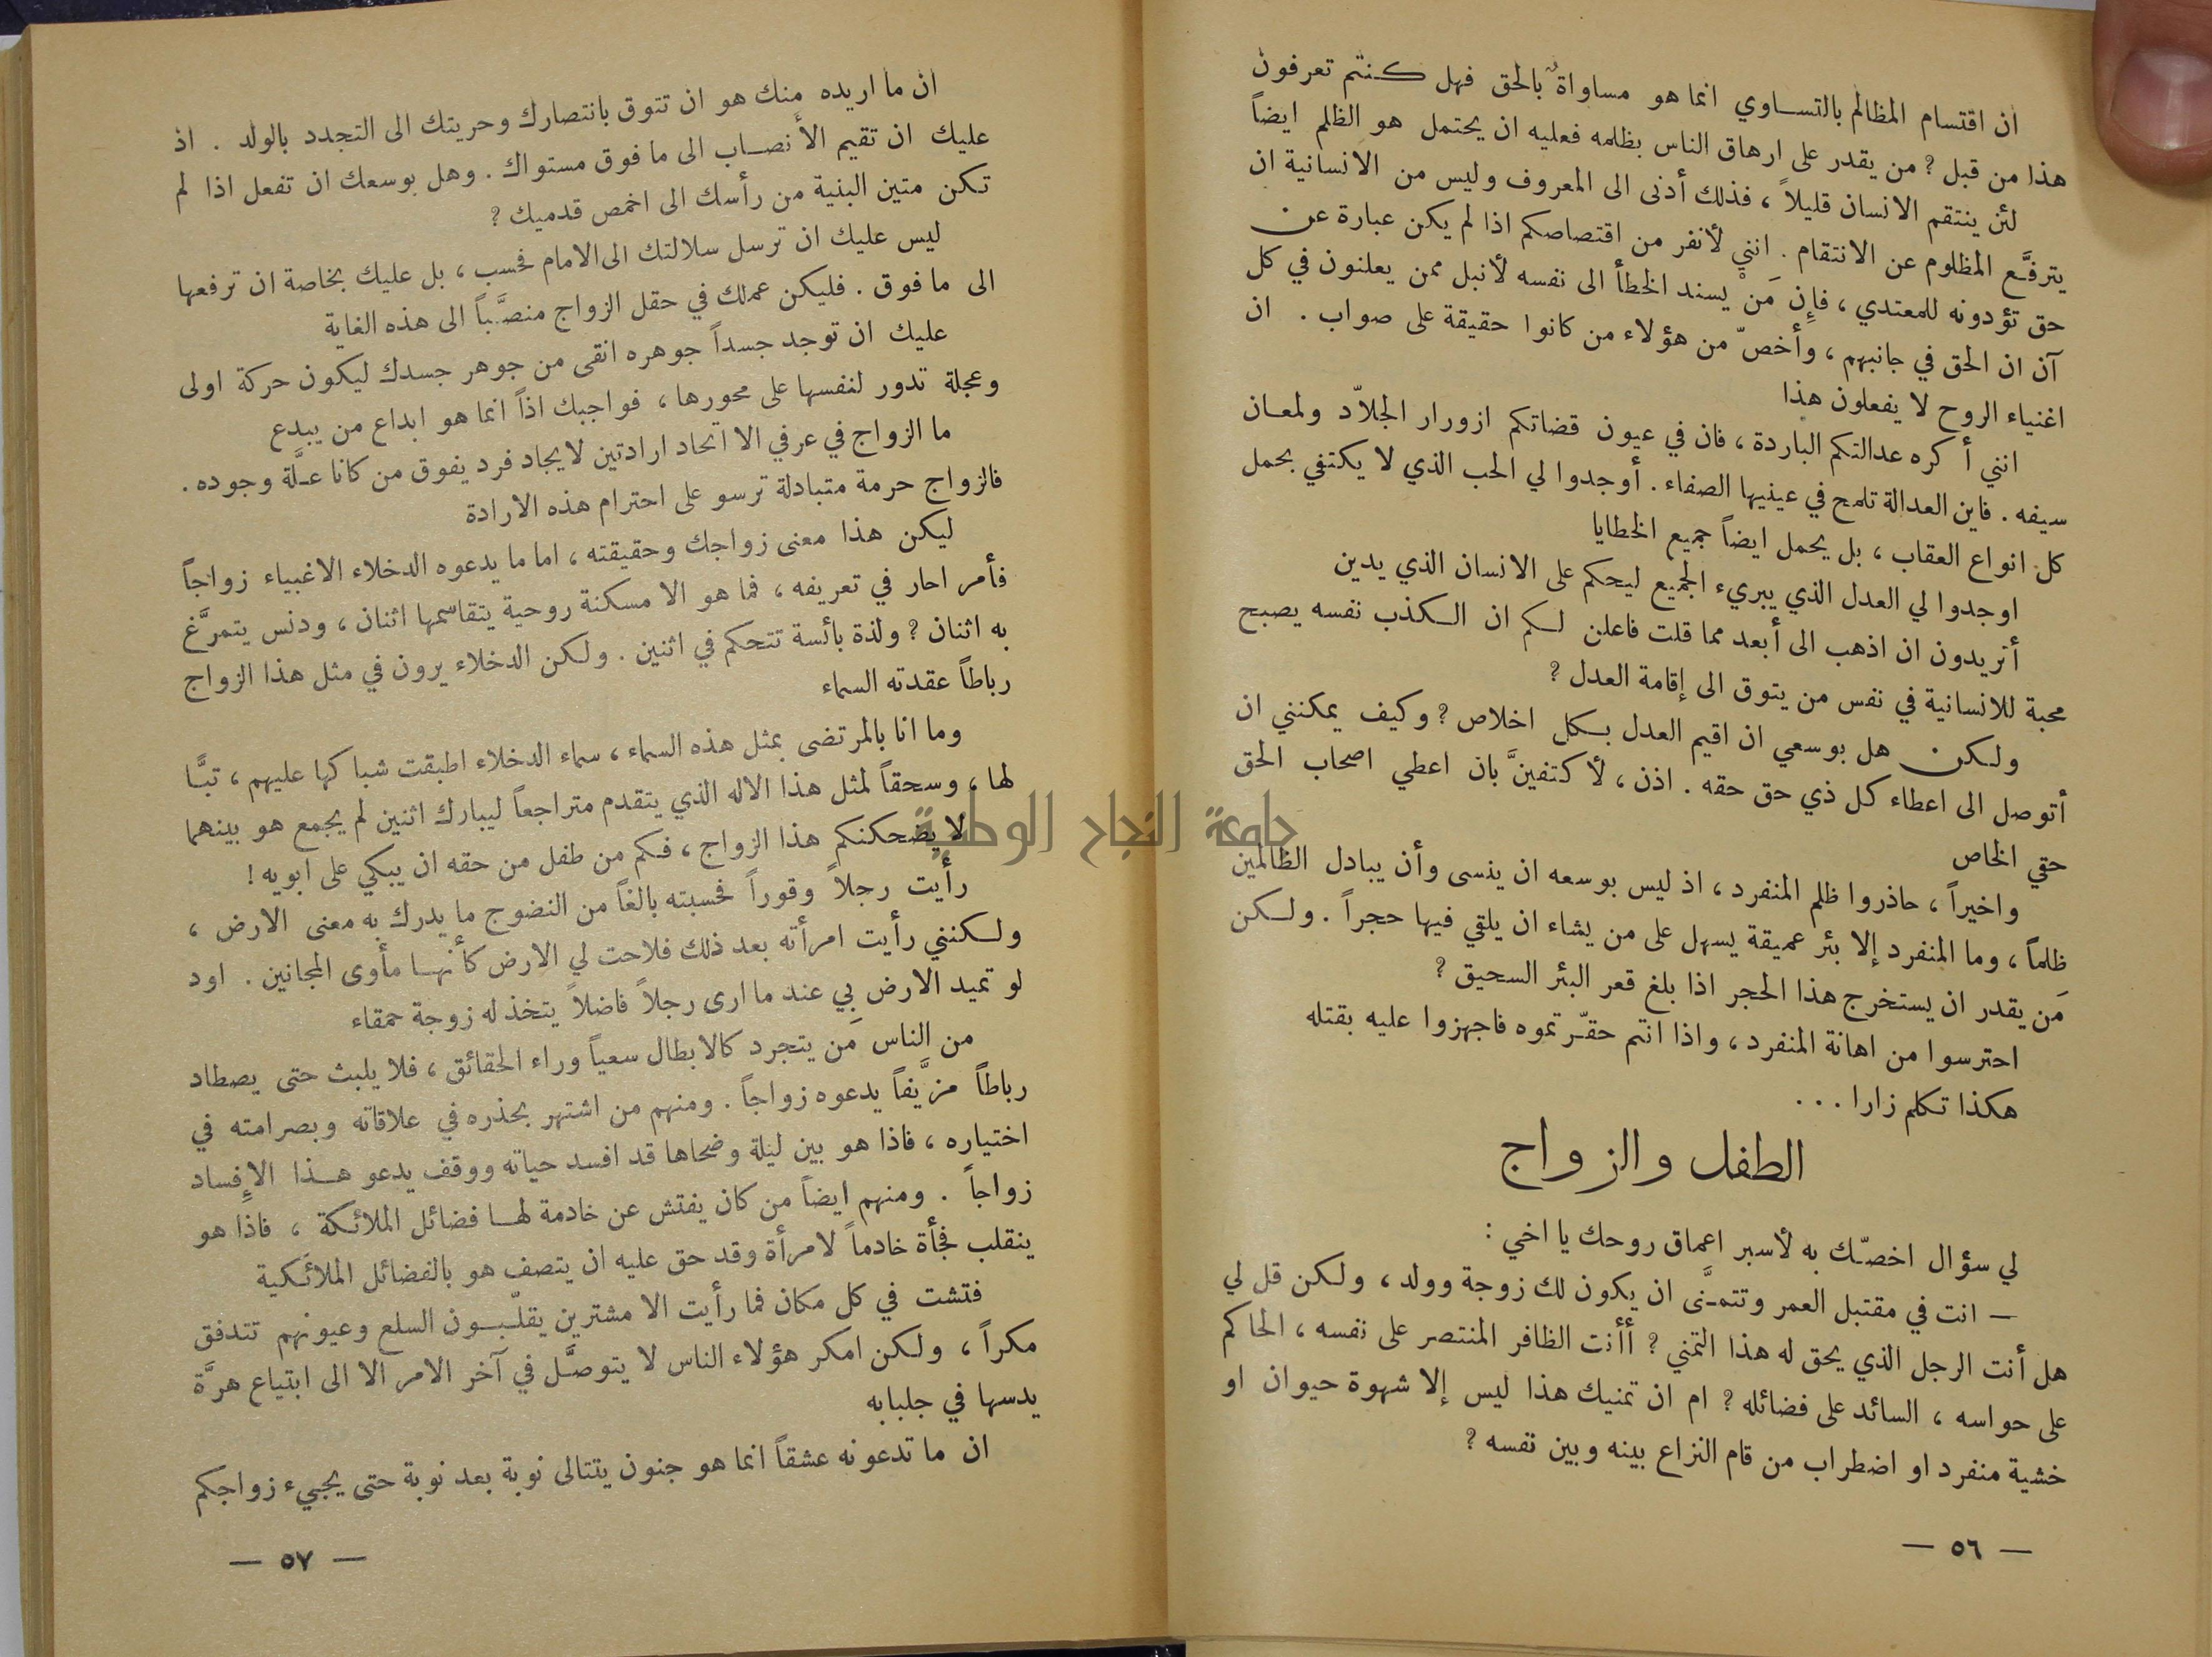 ان اقتسام المظالم بالتساوي انما هو مساواةٌ بالحق فهل كنتم تعرفون
هذا من قبل ? من يقدر على ارهاق الناس بظلمه فعليه ان يحتمل هو الظلم ايضاً
لئن ينتقم الانسان قليلاً ، فذلك أدنى الى المعروف وليس من الانسانية ان
يترفَّع المظلوم عن الانتقام . انني لأنفر من اقتصاصكم اذا لم يكن عبارة عن
حق تؤدونه للمعتدي ، فإن مَنْ يسند الخطأ الى نفسه لأنبل ممن يعلنون في كل
آن ان الحق في جانبهم ، وأخصّ من هؤلاء من كانوا حقيقة على صواب . ان
اغنياء الروح لا يفعلون هذا
انني أكره عدالتكم الباردة ، فان في عيون قضاتكم ازورار الجلاّد ولمعان
سيفه . فاين العدالة تلمح في عينيها الصفاء . أوجدوا لي الحب الذي لا يكتفي بحمل
كل انواع العقاب ، بل يحمل ايضاً جميع الخطايا
اوجدوا لي العدل الذي يبريء الجميع ليحكم على الانسان الذي يدين
أتريدون ان اذهب الى أبعد مما قلت فاعلن لكم ان الكذب نفسه يصبح
محبة للانسانية في نفس من يتوق الى إقامة العدل ?
ولكن هل بوسعي ان اقيم العدل بكل اخلاص ? وكيف يمكنني ان
أتوصل الى اعطاء كل ذي حق حقه . اذن ، لأكتفينَّ بان اعطي اصحاب الحق
حقي الخاص
واخيراً ، حاذروا ظلم المنفرد ، اذ ليس بوسعه ان ينسى وأن يبادل الظالمين
ظلماً ، وما المنفرد إلا بئر عميقة يسهل على من يشاء ان يلقي فيها حجراً . ولكن
مَن يقدر ان يستخرج هذا الحجر اذا بلغ قعر البئر السحيق ?
احترسوا من اهانة المنفرد ، واذا انتم حقّرتموه فاجهزوا عليه بقتله
هكذا تكلم زارا ...
الطفل والزواج
لي سؤال اخصّك به لأسبر اعماق روحك يا اخي :
— انت في مقتبل العمر وتتمنَّى ان يكون لك زوجة وولد ، ولكن قل لي
هل أنت الرجل الذي يحق له هذا التمني ? أأنت الظافر المنتصر على نفسه ، الحاكم
على حواسه ، السائد على فضائله ? ام ان تمنيك هذا ليس إلا شهوة حيوان او
خشية منفرد او اضطراب من قام النزاع بينه وبين نفسه ?
— ٥٦ —
ان ما اريده منك هو ان تتوق بانتصارك وحريتك الى التجدد بالولد . اذ
عليك ان تقيم الأنصاب الى ما فوق مستواك . وهل بوسعك ان تفعل اذا لم
تكن متين البنية من رأسك الى اخمص قدميك ?
ليس عليك ان ترسل سلالتك الى الامام فحسب ، بل عليك بخاصة ان ترفعها
الى ما فوق . فليكن عملك في حقل الزواج منصَّباً الى هذه الغاية
عليك ان توجد جسداً جوهره انقى من جوهر جسدك ليكون حركة اولى
وعجلة تدور لنفسها على محورها ، فواجبك اذاً انما هو ابداع من يبدع
ما الزواج في عرفي الا اتحاد ارادتين لايجاد فرد يفوق من كانا علَّة وجوده .
فالزواج حرمة متبادلة ترسو على احترام هذه الارادة
ليكن هذا معنى زواجك وحقيقته ، اما ما يدعوه الدخلاء الاغبياء زواجاً
فأمر احار في تعريفه ، فما هو الا مسكنة روحية يتقاسمها اثنان ، ودنس يتمرَّغ
به اثنان ? ولذة بائسة تتحكم في اثنين . ولكن الدخلاء يرون في مثل هذا الزواج
رباطاً عقدته السماء
وما انا بالمرتضى بمثل هذه السماء ، سماء الدخلاء اطبقت شباكها عليهم ، تبًّا
لها ، وسحقاً لمثل هذا الاله الذي يتقدم متراجعاً ليبارك اثنين لم يجمع هو بينهما
لا يضحكنكم هذا الزواج ، فكم من طفل من حقه ان يبكي على ابويه !
رأيت رجلاً وقوراً فحسبته بالغاً من النضوج ما يدرك به معنى الارض ،
ولكنني رأيت امرأته بعد ذلك فلاحت لي الارض كأنها مأوى المجانين . اود
لو تميد الارض بي عند ما ارى رجلاً فاضلاً يتخذ له زوجة حمقاء
من الناس مَن يتجرد كالابطال سعياً وراء الحقائق ، فلا يلبث حتى يصطاد
رباطاً مزيَّفاً يدعوه زواجاً . ومنهم من اشتهر بحذره في علاقاته وبصرامته في
اختياره ، فاذا هو بين ليلة وضحاها قد افسد حياته ووقف يدعو هذا الإفساد
زواجاً . ومنهم ايضاً من كان يفتش عن خادمة لها فضائل الملائكة ، فاذا هو
ينقلب فجأة خادماً لامرأة وقد حق عليه ان يتصف هو بالفضائل الملائكية
فتشت في كل مكان فما رأيت الا مشترين يقلّبون السلع وعيونهم تتدفق
مكراً ، ولكن امكر هؤلاء الناس لا يتوصَّل في آخر الامر الا الى ابتياع هرَّة
يدسها في جلبابه
ان ما تدعونه عشقاً انما هو جنون يتتالى نوبة بعد نوبة حتى يجيء زواجكم
— ٥٧ —
جامعة النجاح الوطنية